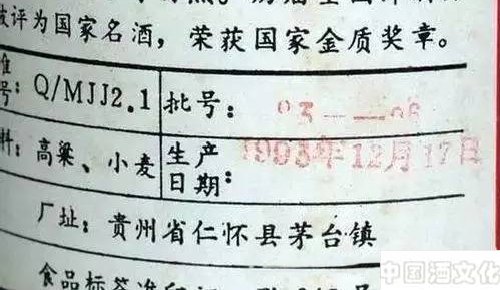 被评为国家名酒，荣获国家金质奖章。
号：Q/MJJ2.1 批号：93——06
料：高粱、小麦 生产日期：1993年12月17日
厂址：贵州省仁怀县茅台镇
食品标签准印
中国酒文化